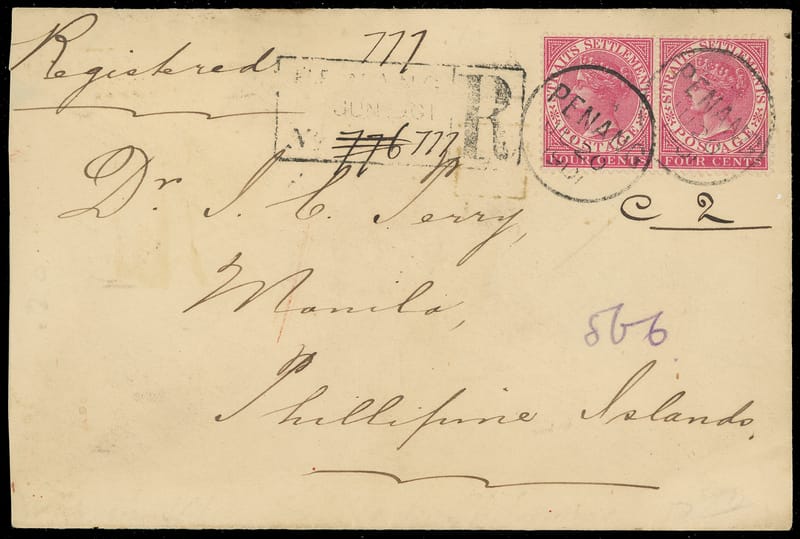 Registered 777
PENANG
JUN 1901
R
776 777
STRAITS SETTLEMENTS
POSTAGE
FOUR CENTS
STRAITS SETTLEMENTS
POSTAGE
FOUR CENTS
PENANG
1901
PENANG
Dr. I. C. Perry,
C 2
Manila,
566
Phillipine Islands.